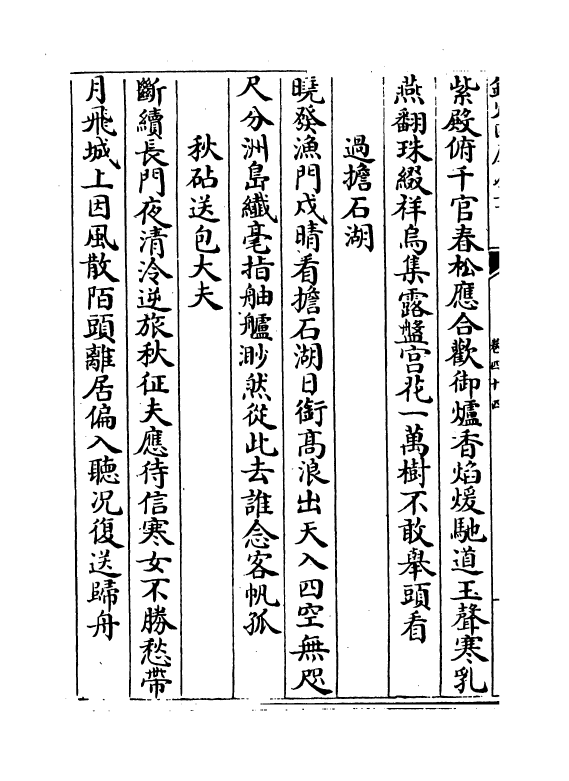 紫殿俯千官春松應合歡御爐香焰煖馳道玉聲寒乳
燕翻珠綴祥烏集露盤宫花一萬樹不敢舉頭看
過擔石湖
曉發漁門戍晴看擔石湖日銜髙浪出天入四空無咫
尺分洲島纎毫指舳艫渺然從此去誰念客帆孤
秋砧送包大夫
斷續長門夜清泠逆旅秋征夫應待信寒女不勝愁帶
月飛城上因風散陌頭離居偏入聽况復送歸舟
卷四十四